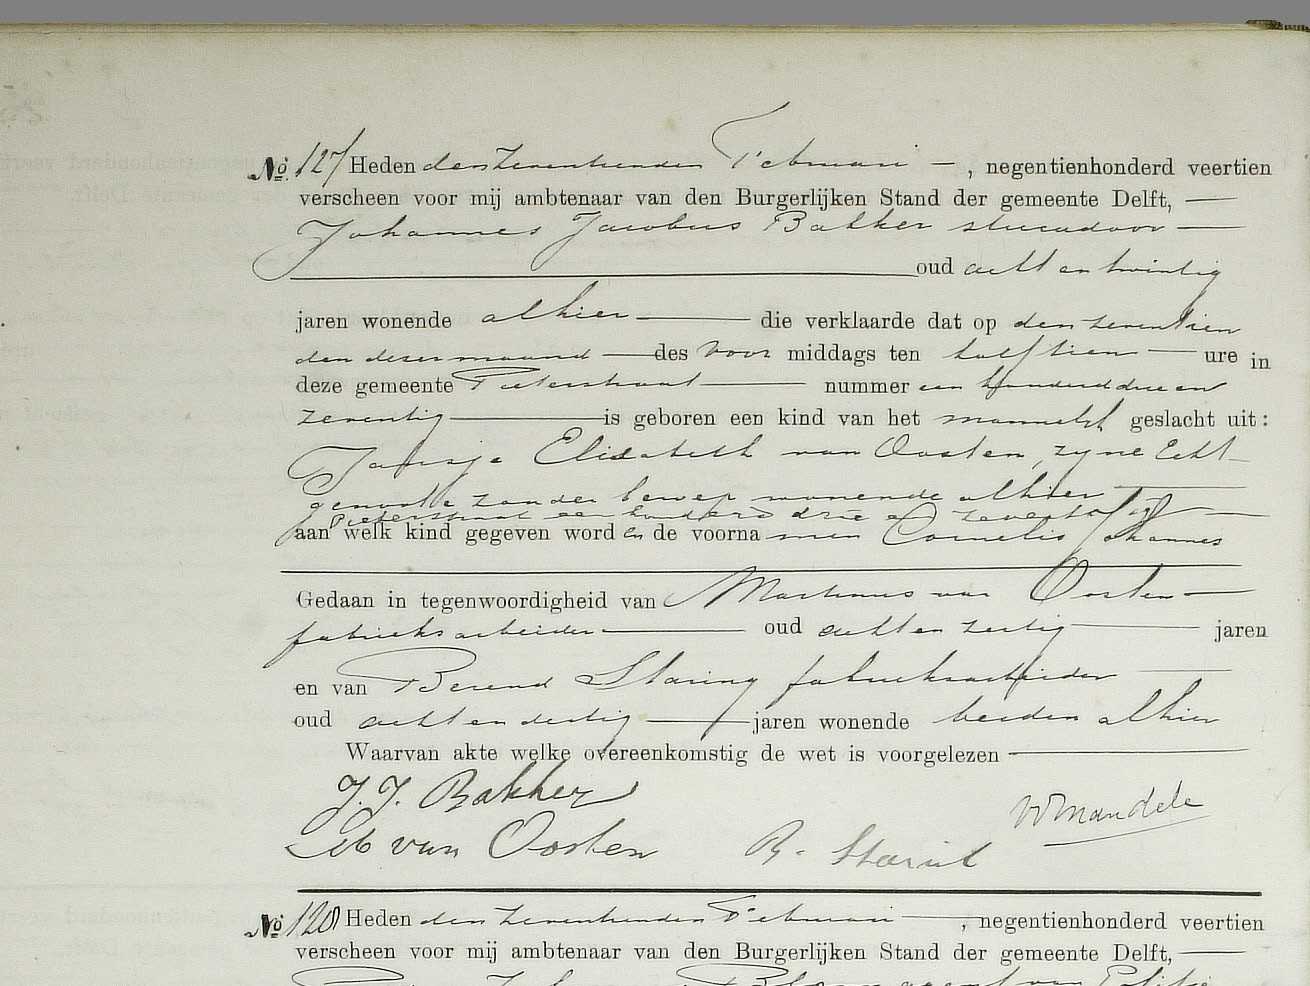 No. 127 Heden den zeventienden Februari —, negentienhonderd veertien
verscheen voor mij ambtenaar van den Burgerlijken Stand der gemeente Delft, —
Johannes Jacobus Bakker stucadoor —
oud acht en twintig
jaren wonende alhier — die verklaarde dat op den zeventien
den dezer maand — des voor middags ten half tien — ure in
deze gemeente Pieterstraat — nummer een honderd drie en
zeventig — is geboren een kind van het mannelijk geslacht uit:
Jansje Elisabeth van Oosten, zyne Echt-
genoote zonder beroep wonende alhier —
Pieterstraat een honderd drie en zeventig —
aan welk kind gegeven word en de voorna men Cornelis Johannes
Gedaan in tegenwoordigheid van Martinus van Oosten —
fabrieksarbeider — oud acht en zestig — jaren
en van Berend Staring fabrieksarbeider —
oud acht en dertig — jaren wonende beiden alhier
Waarvan akte welke overeenkomstig de wet is voorgelezen —
J. J. Bakker
van Oosten B. Starink
No. 128 Heden den zeventienden Februari —, negentienhonderd veertien
verscheen voor mij ambtenaar van den Burgerlijken Stand der gemeente Delft, —